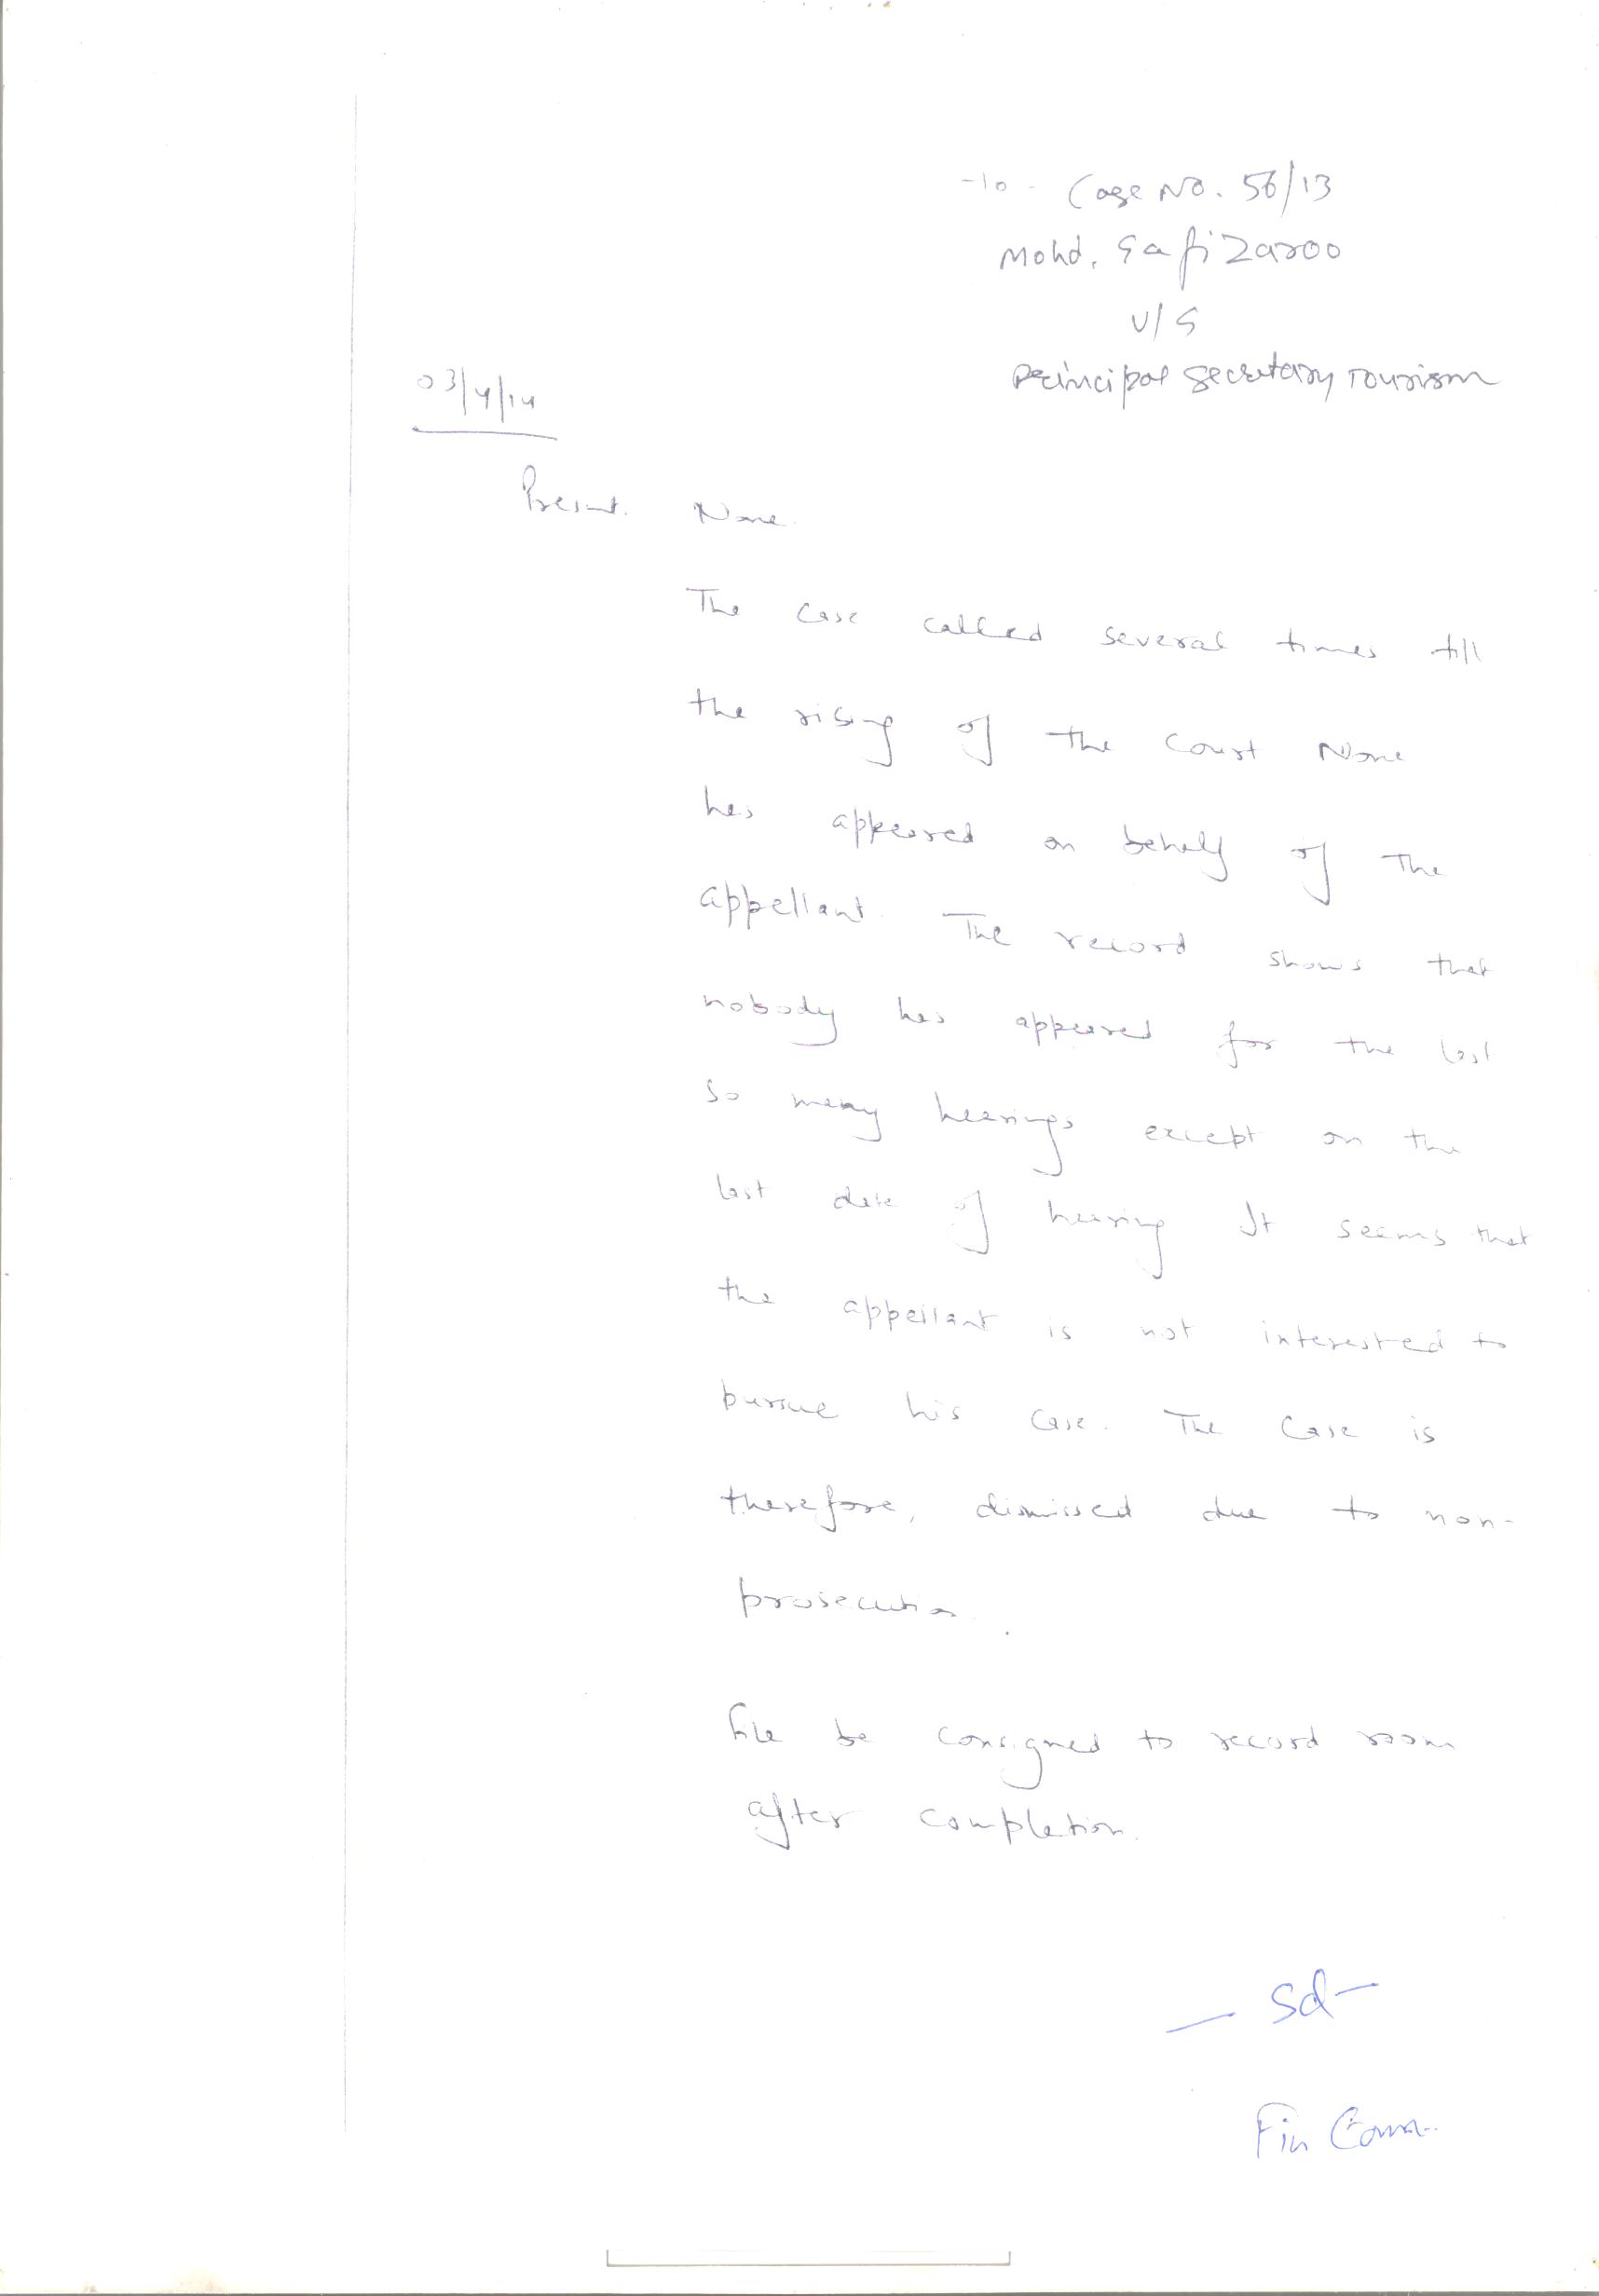 -10- Case No. 56/13
Mohd. Safi Zaroo
V/S
Principal Secretary Tourism
03/4/14
Present. None.
The Case called several times till
the rising of the Court None
has appeared on behalf of the
appellant. The record shows that
nobody has appeared for the last
so many hearings except on the
last date of hearing It seems that
the appellant is not interested to
pursue his case. The Case is
therefore, dismissed due to non-
prosecution.
File be consigned to record room
after completion.
- Sd -
Fin Comm.